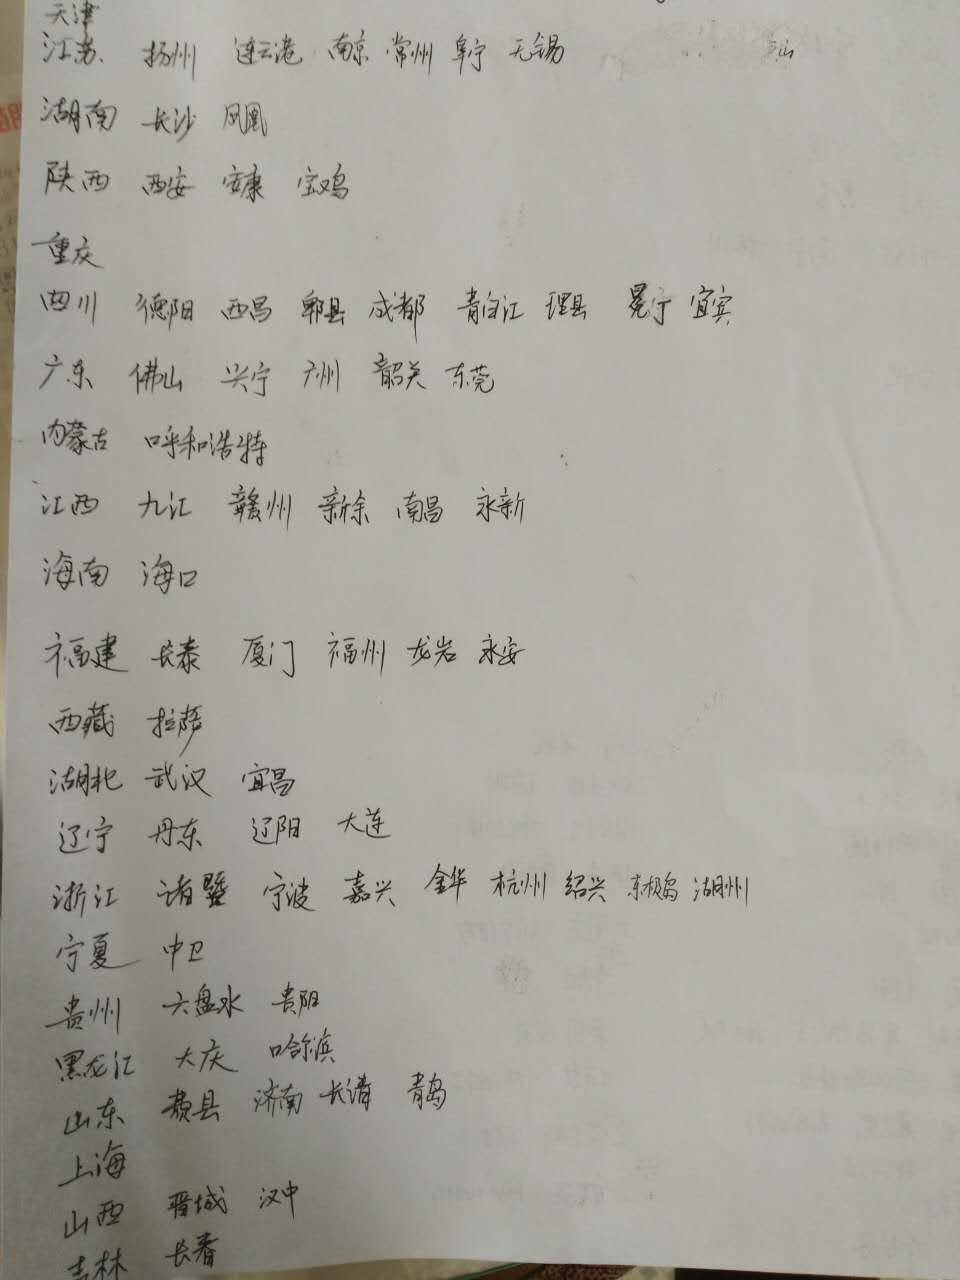 天津
江苏 扬州 连云港 南京 常州 阜宁 无锡
湖南 长沙 凤凰
陕西 西安 安康 宝鸡
重庆
四川 德阳 西昌 郫县 成都 青白江 理县 冕宁 宜宾
广东 佛山 兴宁 广州 韶关 东莞
内蒙古 呼和浩特
江西 九江 赣州 新余 南昌 永新
海南 海口
福建 长泰 厦门 福州 龙岩 永安
西藏 拉萨
湖北 武汉 宜昌
辽宁 丹东 辽阳 大连
浙江 诸暨 宁波 嘉兴 金华 杭州 绍兴 东极岛 湖州
宁夏 中卫
贵州 六盘水 贵阳
黑龙江 大庆 哈尔滨
山东 费县 济南 长清 青岛
上海
山西 晋城 汉中
吉林 长春